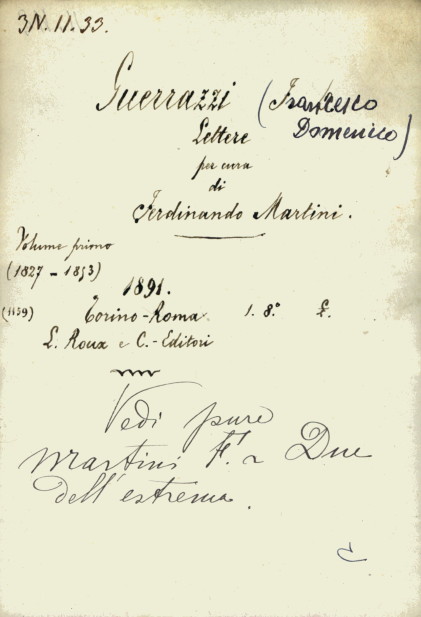 3N. 11. 33.
Guerrazzi (Francesco
Domenico)
Lettere
per cura
di
Ferdinando Martini.
Volume primo
(1827 - 1853)
1891.
(1159) Torino-Roma 1. 8.° £.
L. Roux e C. - Editori
Vedi pure
Martini F. Due
dell'estrema.